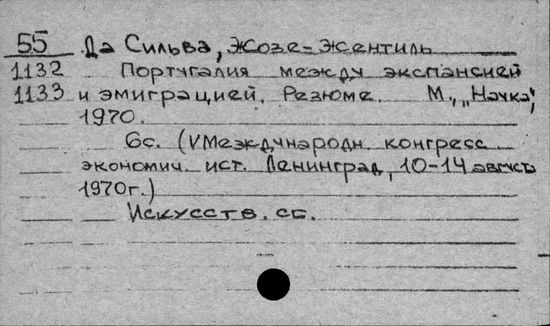 55 Да Сильва, Жозе-Жентиль
1132 Португалия между экспансией
1133 и эмиграцией. Резюме. М., „Наука",
1970.
6с. (V Международн. конгресс
экономич. ист. Ленинград, 10-14 августа
1970г.)
Искусств. сб.